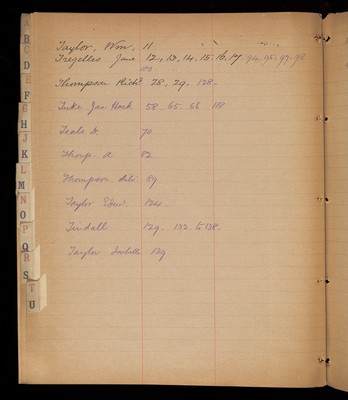 A
B
C
D
E
F
G
H
J
K
L
M
N
O
P
Q
R
S
T
U
Taylor, Wm, 11
Tregelles Jane 12, 13, 14, 15, 16, 17 94. 95. 97. 98
100
Thompson Richd 28, 29. 128.
Tuke Jas Hack 58. 65. 66 118
Teale D. 70
Thorp. A 82
Thompson 89
Taylor Edw. 124.
Tindall 129. 132 to 138.
Taylor Isabella 129